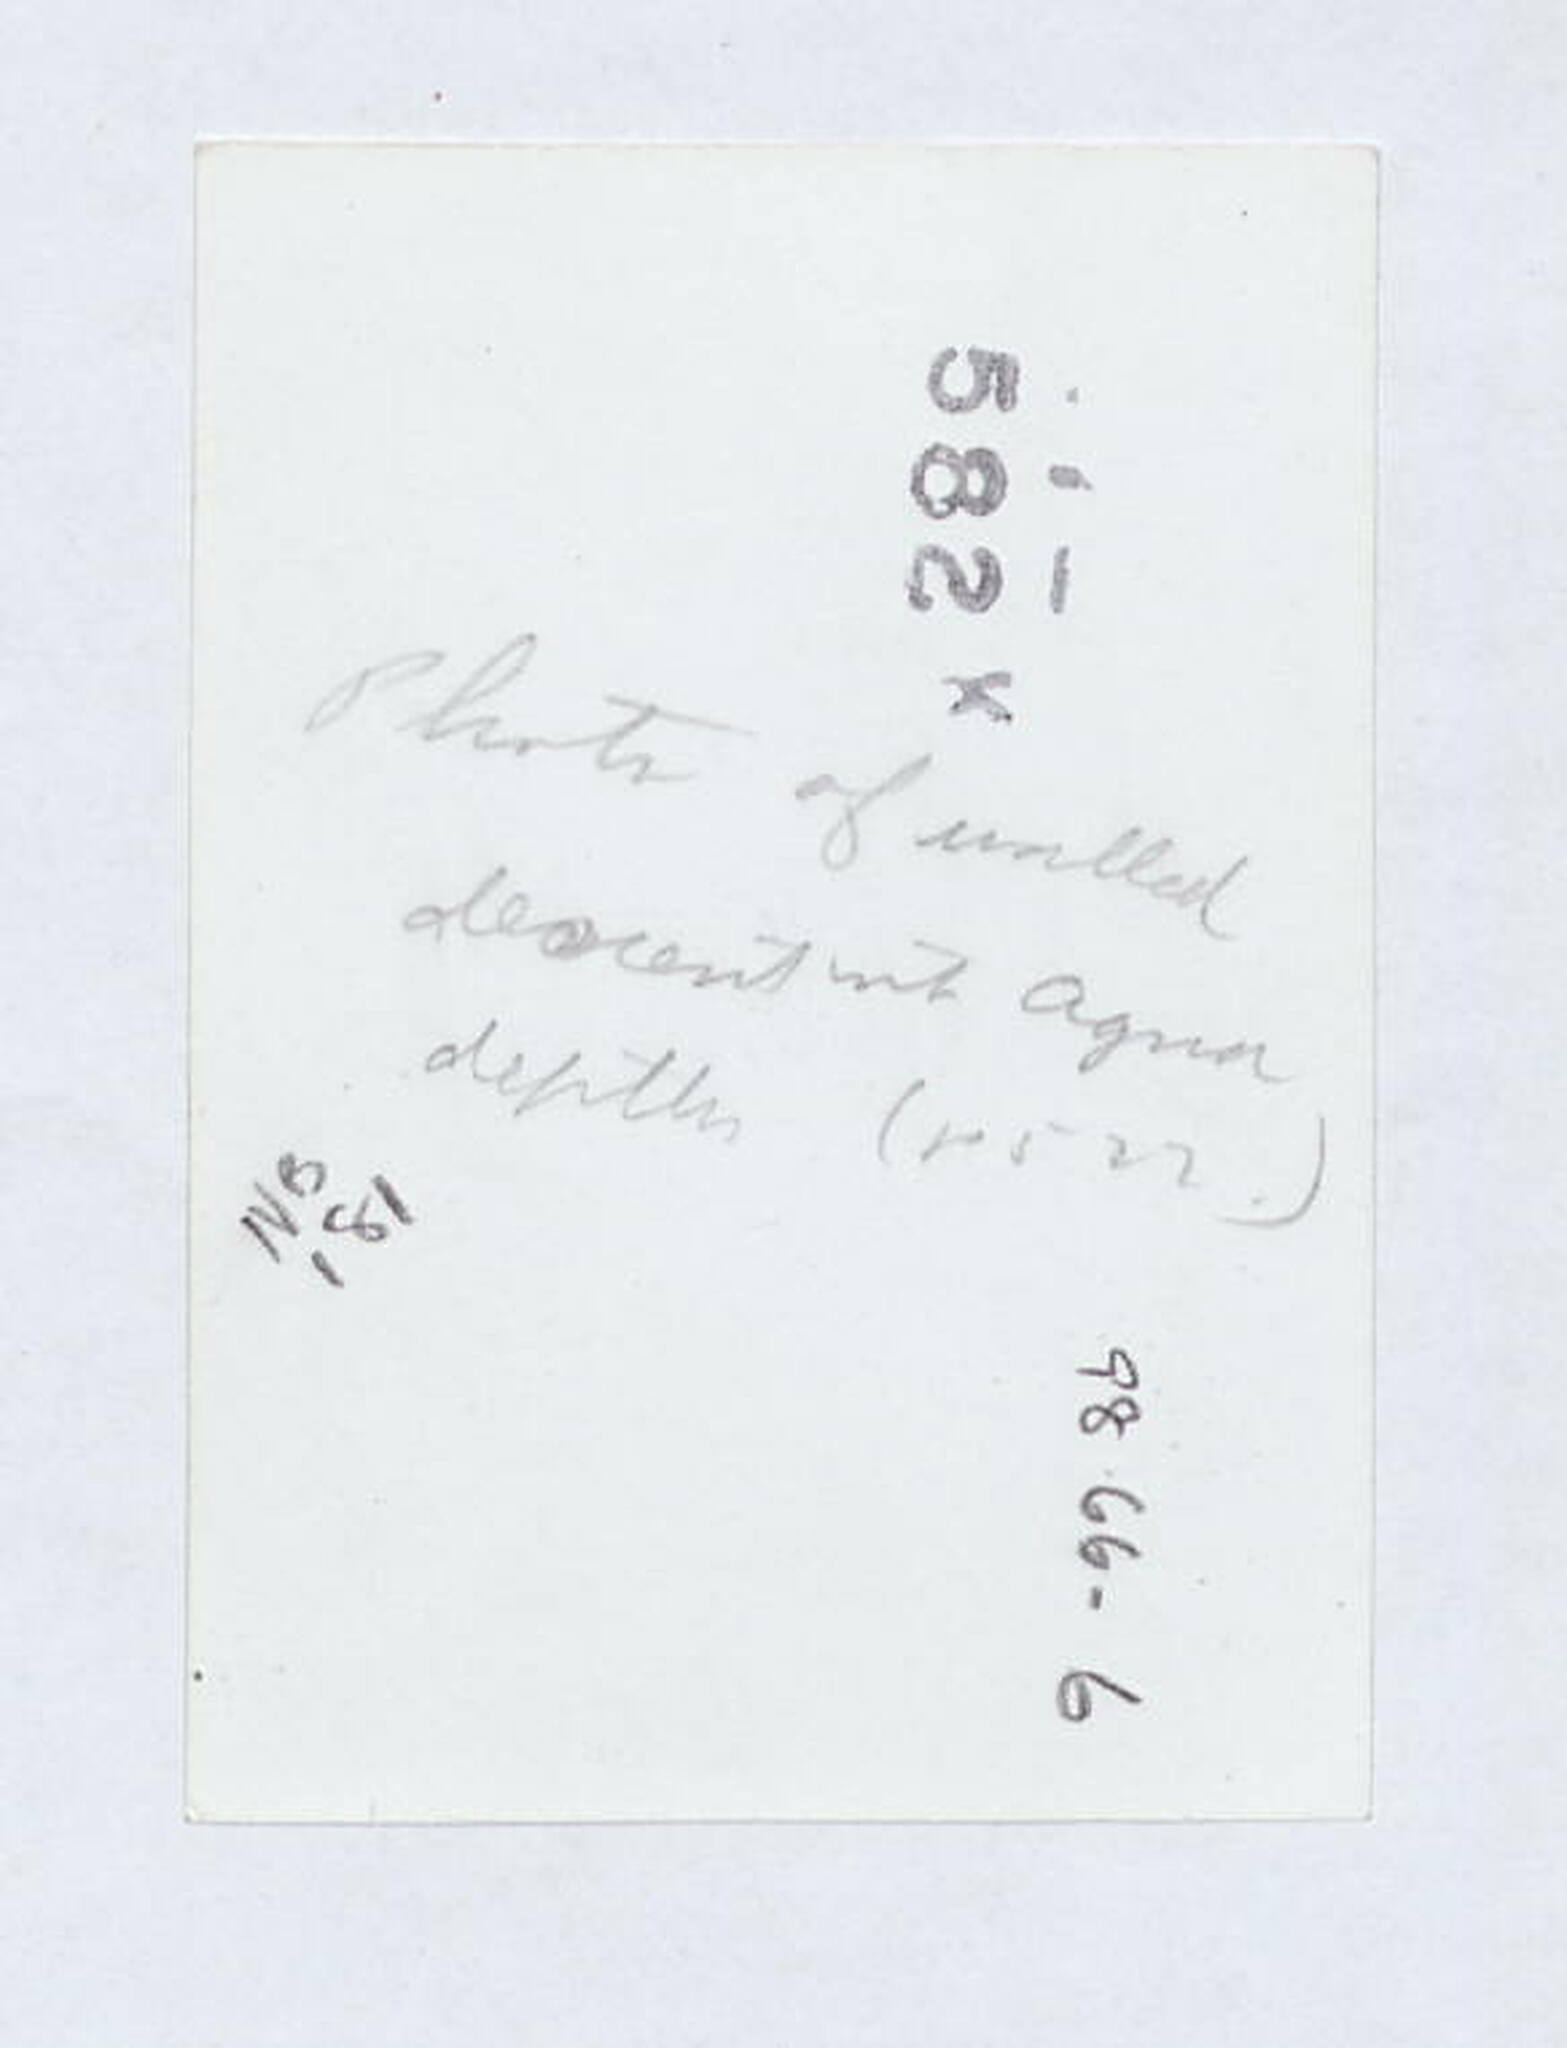 582 K
Photo of walled
descent into agua
depths
NB
'81
98 66-6